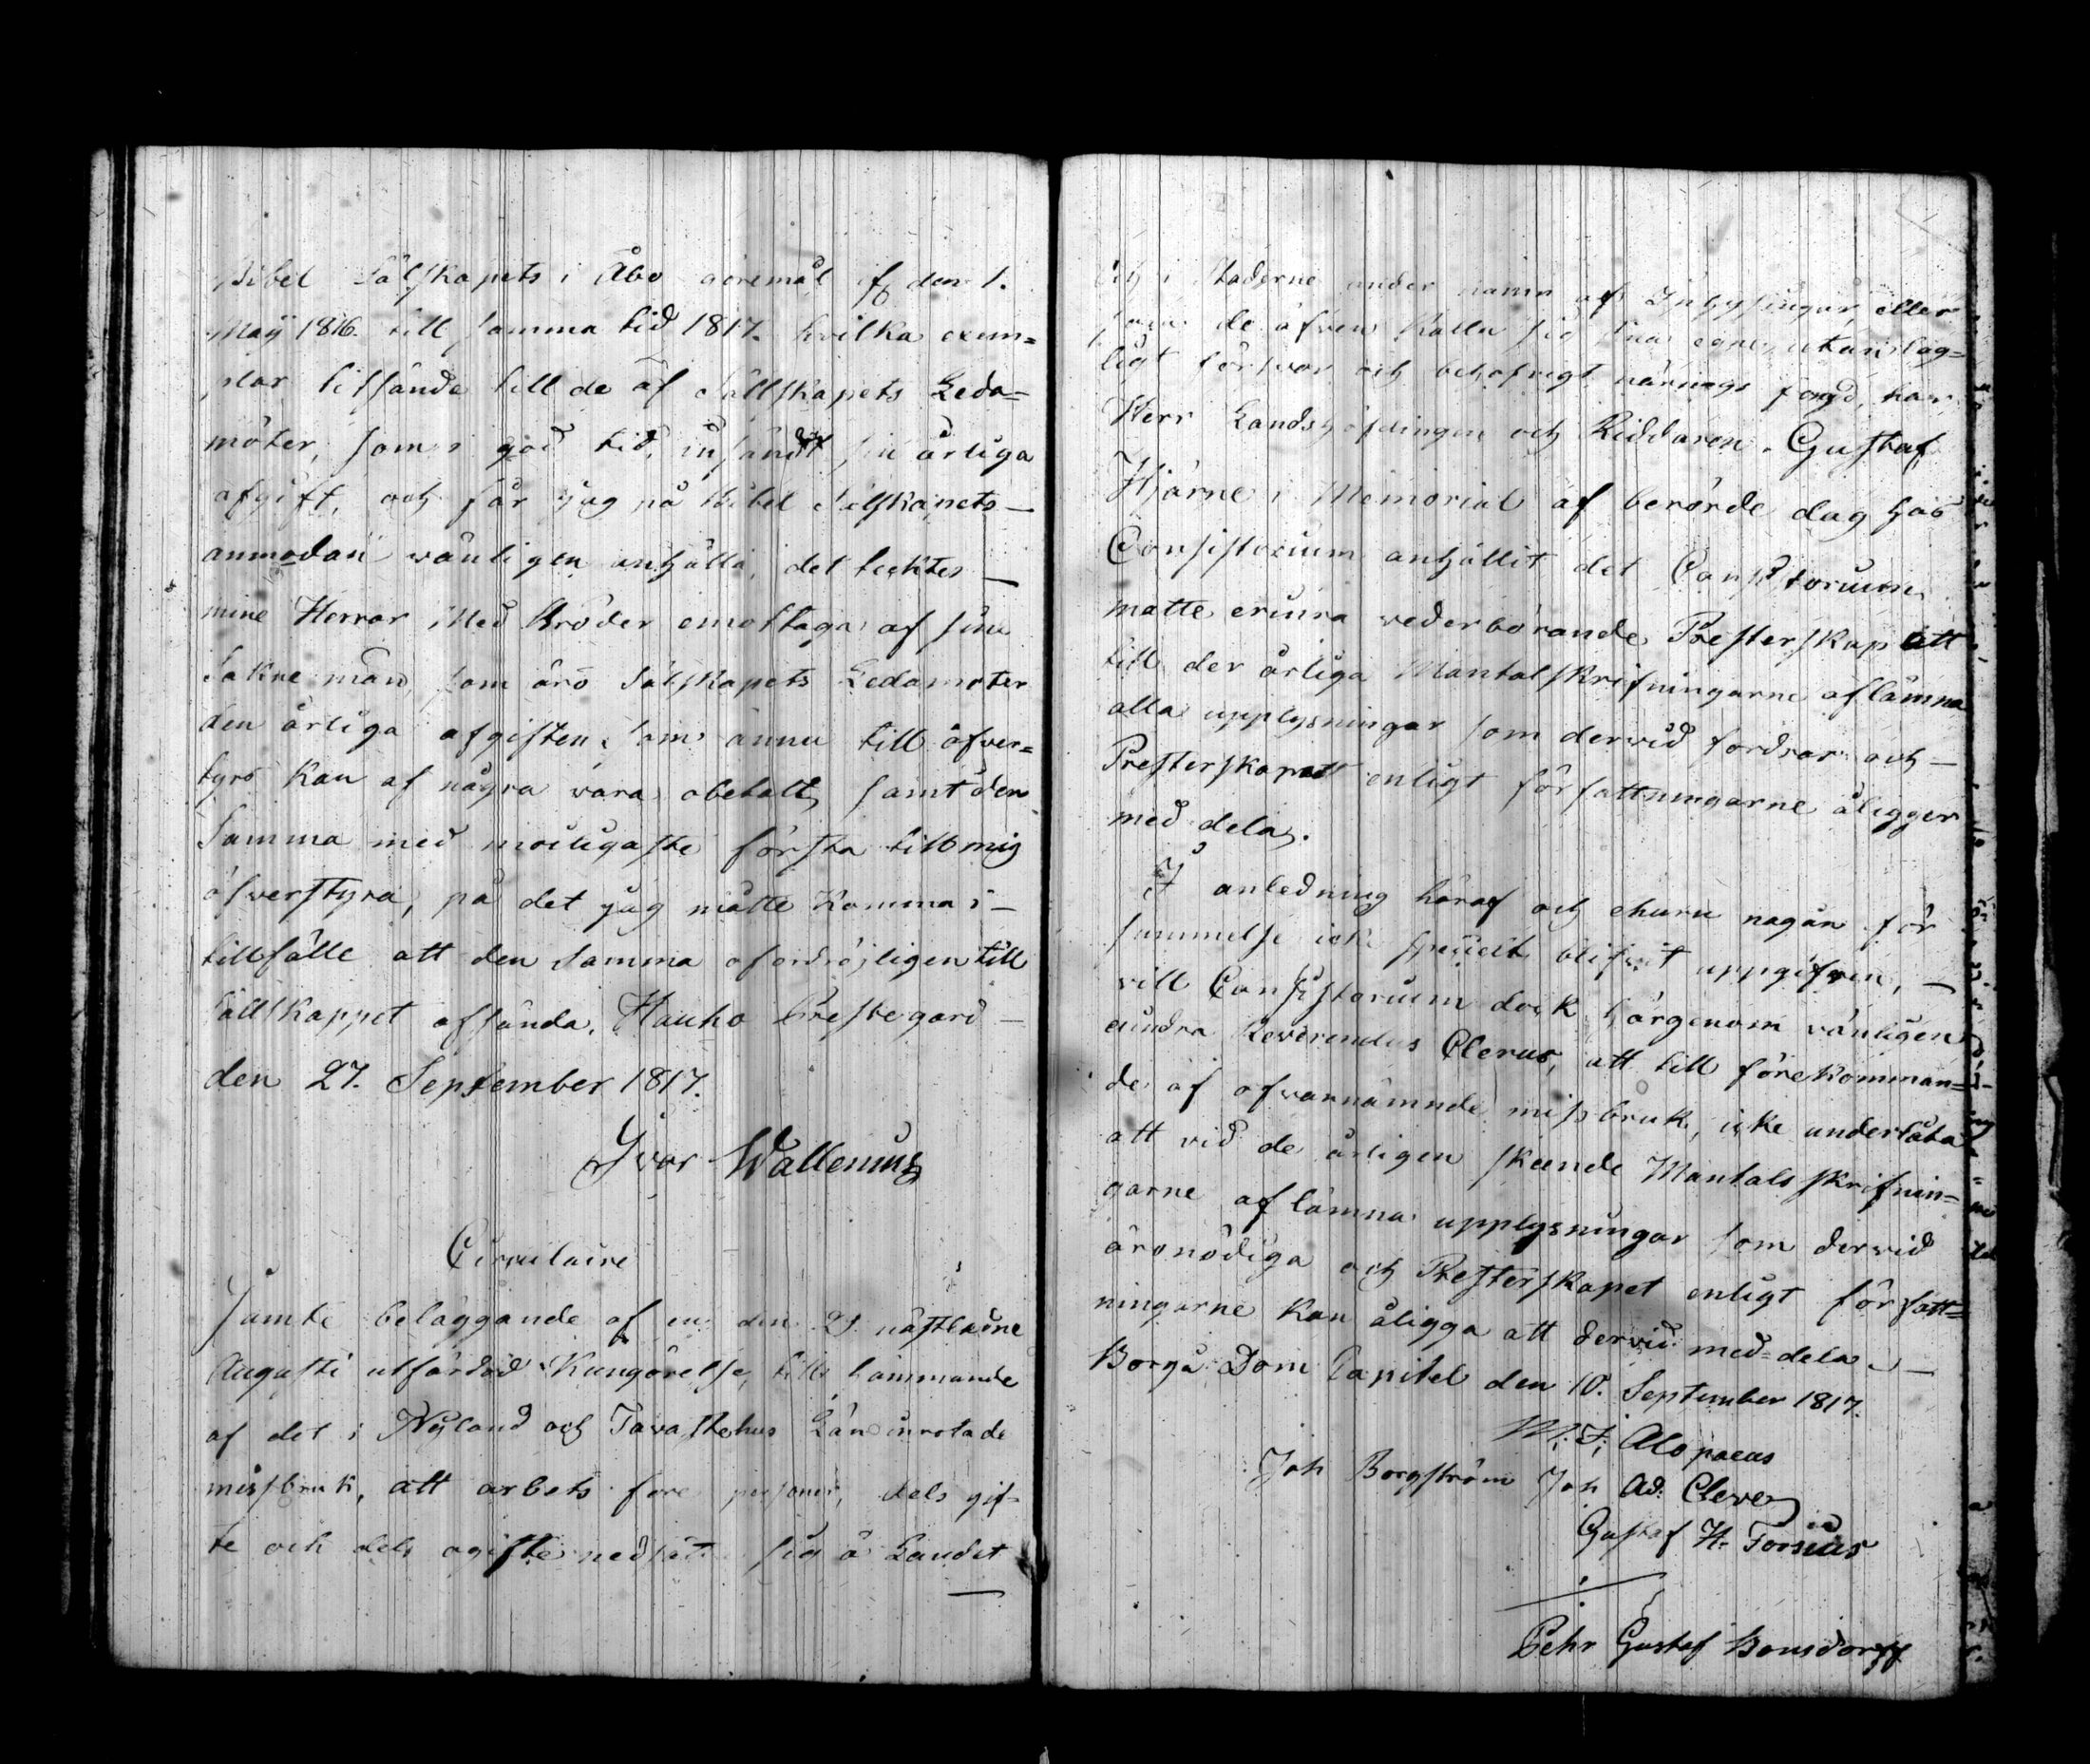 Bibel Sälskapets i Åbo göremål if den 1.
Maÿ 1816. till samma tid 1817. hvilka exem=
plar tilsände till de af Sällskapets Leda=
möter, som i god tid insändt sin årliga
afgift, och får jag på Bibel Sälskapets —
anmodan vänligen anhålla, det tecktes —
mine Herrar Med Bröder emottaga af sine
Sokne män, som äro Sälskapets Ledamöter
den årliga afgiften, som ännu till äfven=
tyrs kan af några vara obetalt, samt den
samma med möiligaste första till mig
öfverstyra, på det jag måtte komma i —
tillfälle att den samma ofördröjligen till
Sällskappet afsända. Hauho Prestegård —
den 27. September 1817.
Ivar Wallenius
Circulaire
Jämte beläggande af en den 21 nästledne
Augusti utfärdad Kungörelse, till hämmande
af det i Nyland och Tavastehus Län inrotade
missbruk, att arbets före personer, dels gif=
te och dels ogifte nedsätta sig å Landet —
och i Städerne under namn af Inhysingar, eller
som de äfven kalla sig sina egne, utan lag=
ligt försvar och behöfvigt närings fång, har
Herr Landshöfdingen och Riddaren Gustaf
Hjärne i Memorial af berörde dag hos
Consistorium anhållit det Consistorium
måtte erinra vederbörande Presterskap att
till der årliga Mantalskrifningarne aflämna
alla upplysningar som dervid fordras och —
Presterskapet enligt författningarne åligger
med dela.
I anledning häraf och ehuru någon för
summelse icke speciell blifvit uppgifven, —
vill Consistorium dock härgenom vänligen
erindra Reverendus Clerus, att till förekomman=
de af ofvannämnde missbruk, icke underlåta
att vid de årligen skeende Mantals skrifnin=
garne aflämna upplysningar som dervid
äro nödiga och Presterskapet enligt författ=
ningarne kan åligga att dervid med-dela. —
Borgå Dom Capitel den 10. September 1817.
M: J: Alopaeus
Joh Borgström Joh Ad: Cleve
Gustaf H. Forsius
/ Pehr Gustaf Bonsdorff